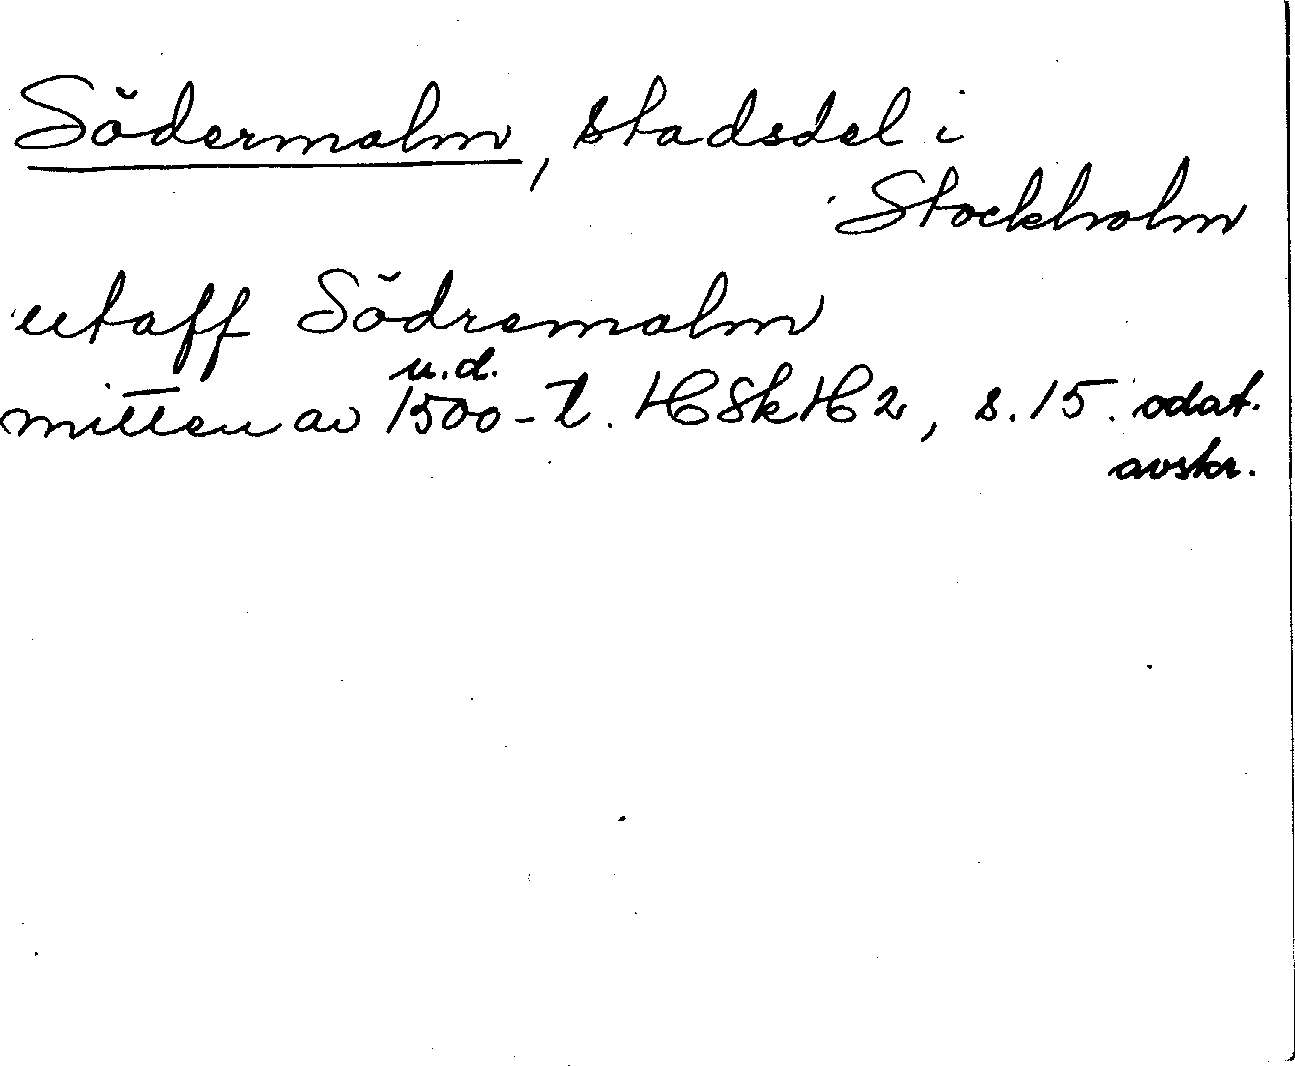 Södermalm, stadsdel i
Stockholm
utaff Södremalm
u.d.
mitten av 1500-t. HSkH 2, s. 15. odat.
avskr.